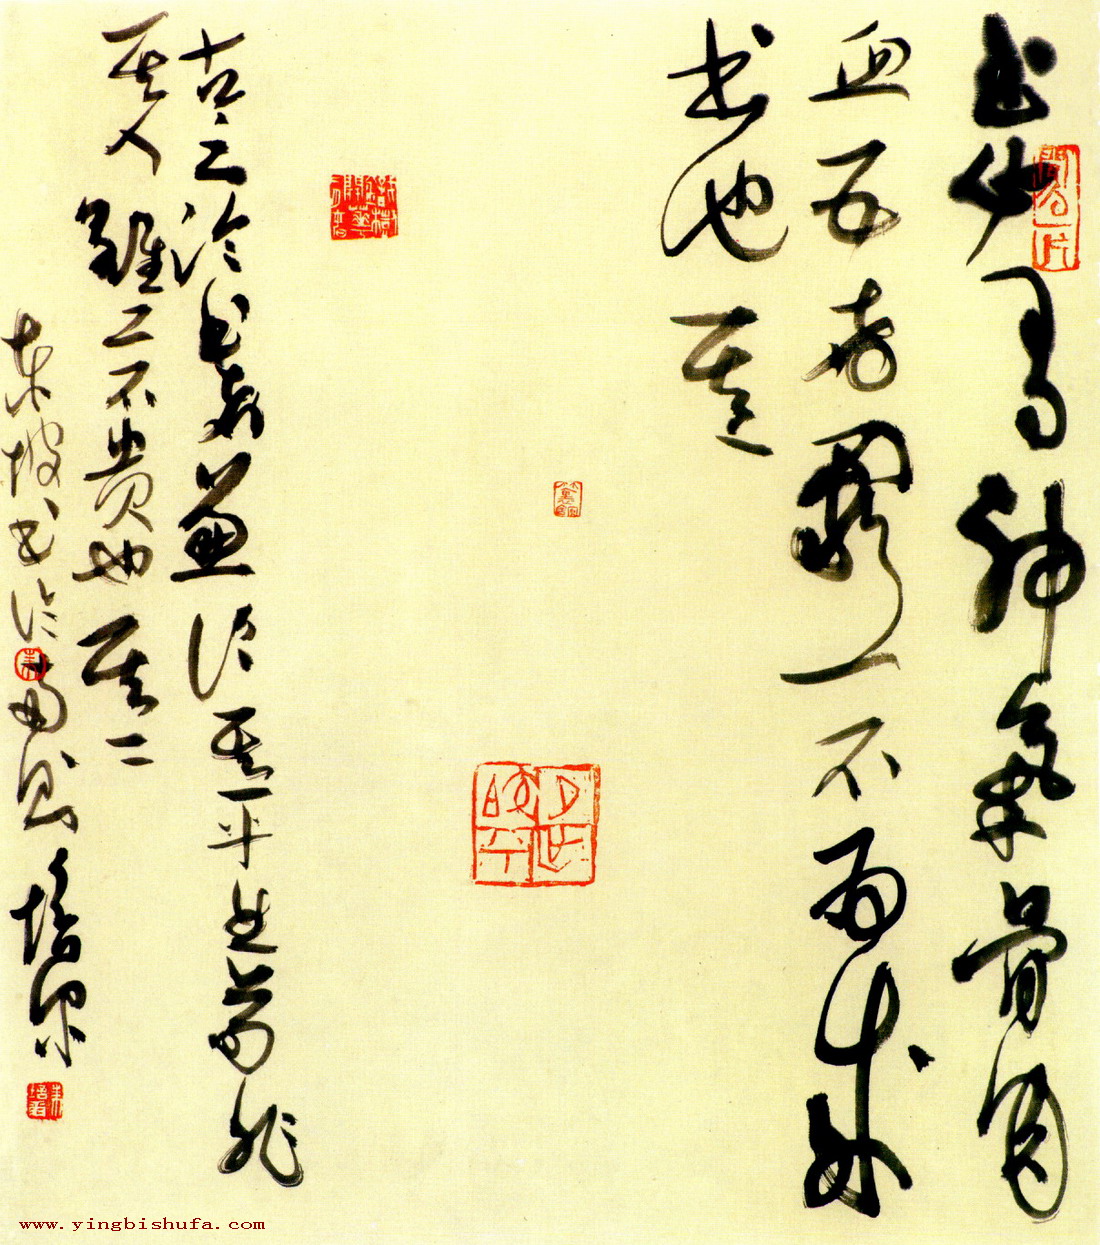 書必有神氣骨肉
血五者闕一不為成
書也其一
古之論書者兼論其平生苟非
其人雖工不貴也其二
東坡書論兩則培尔
www.yingbishufa.com